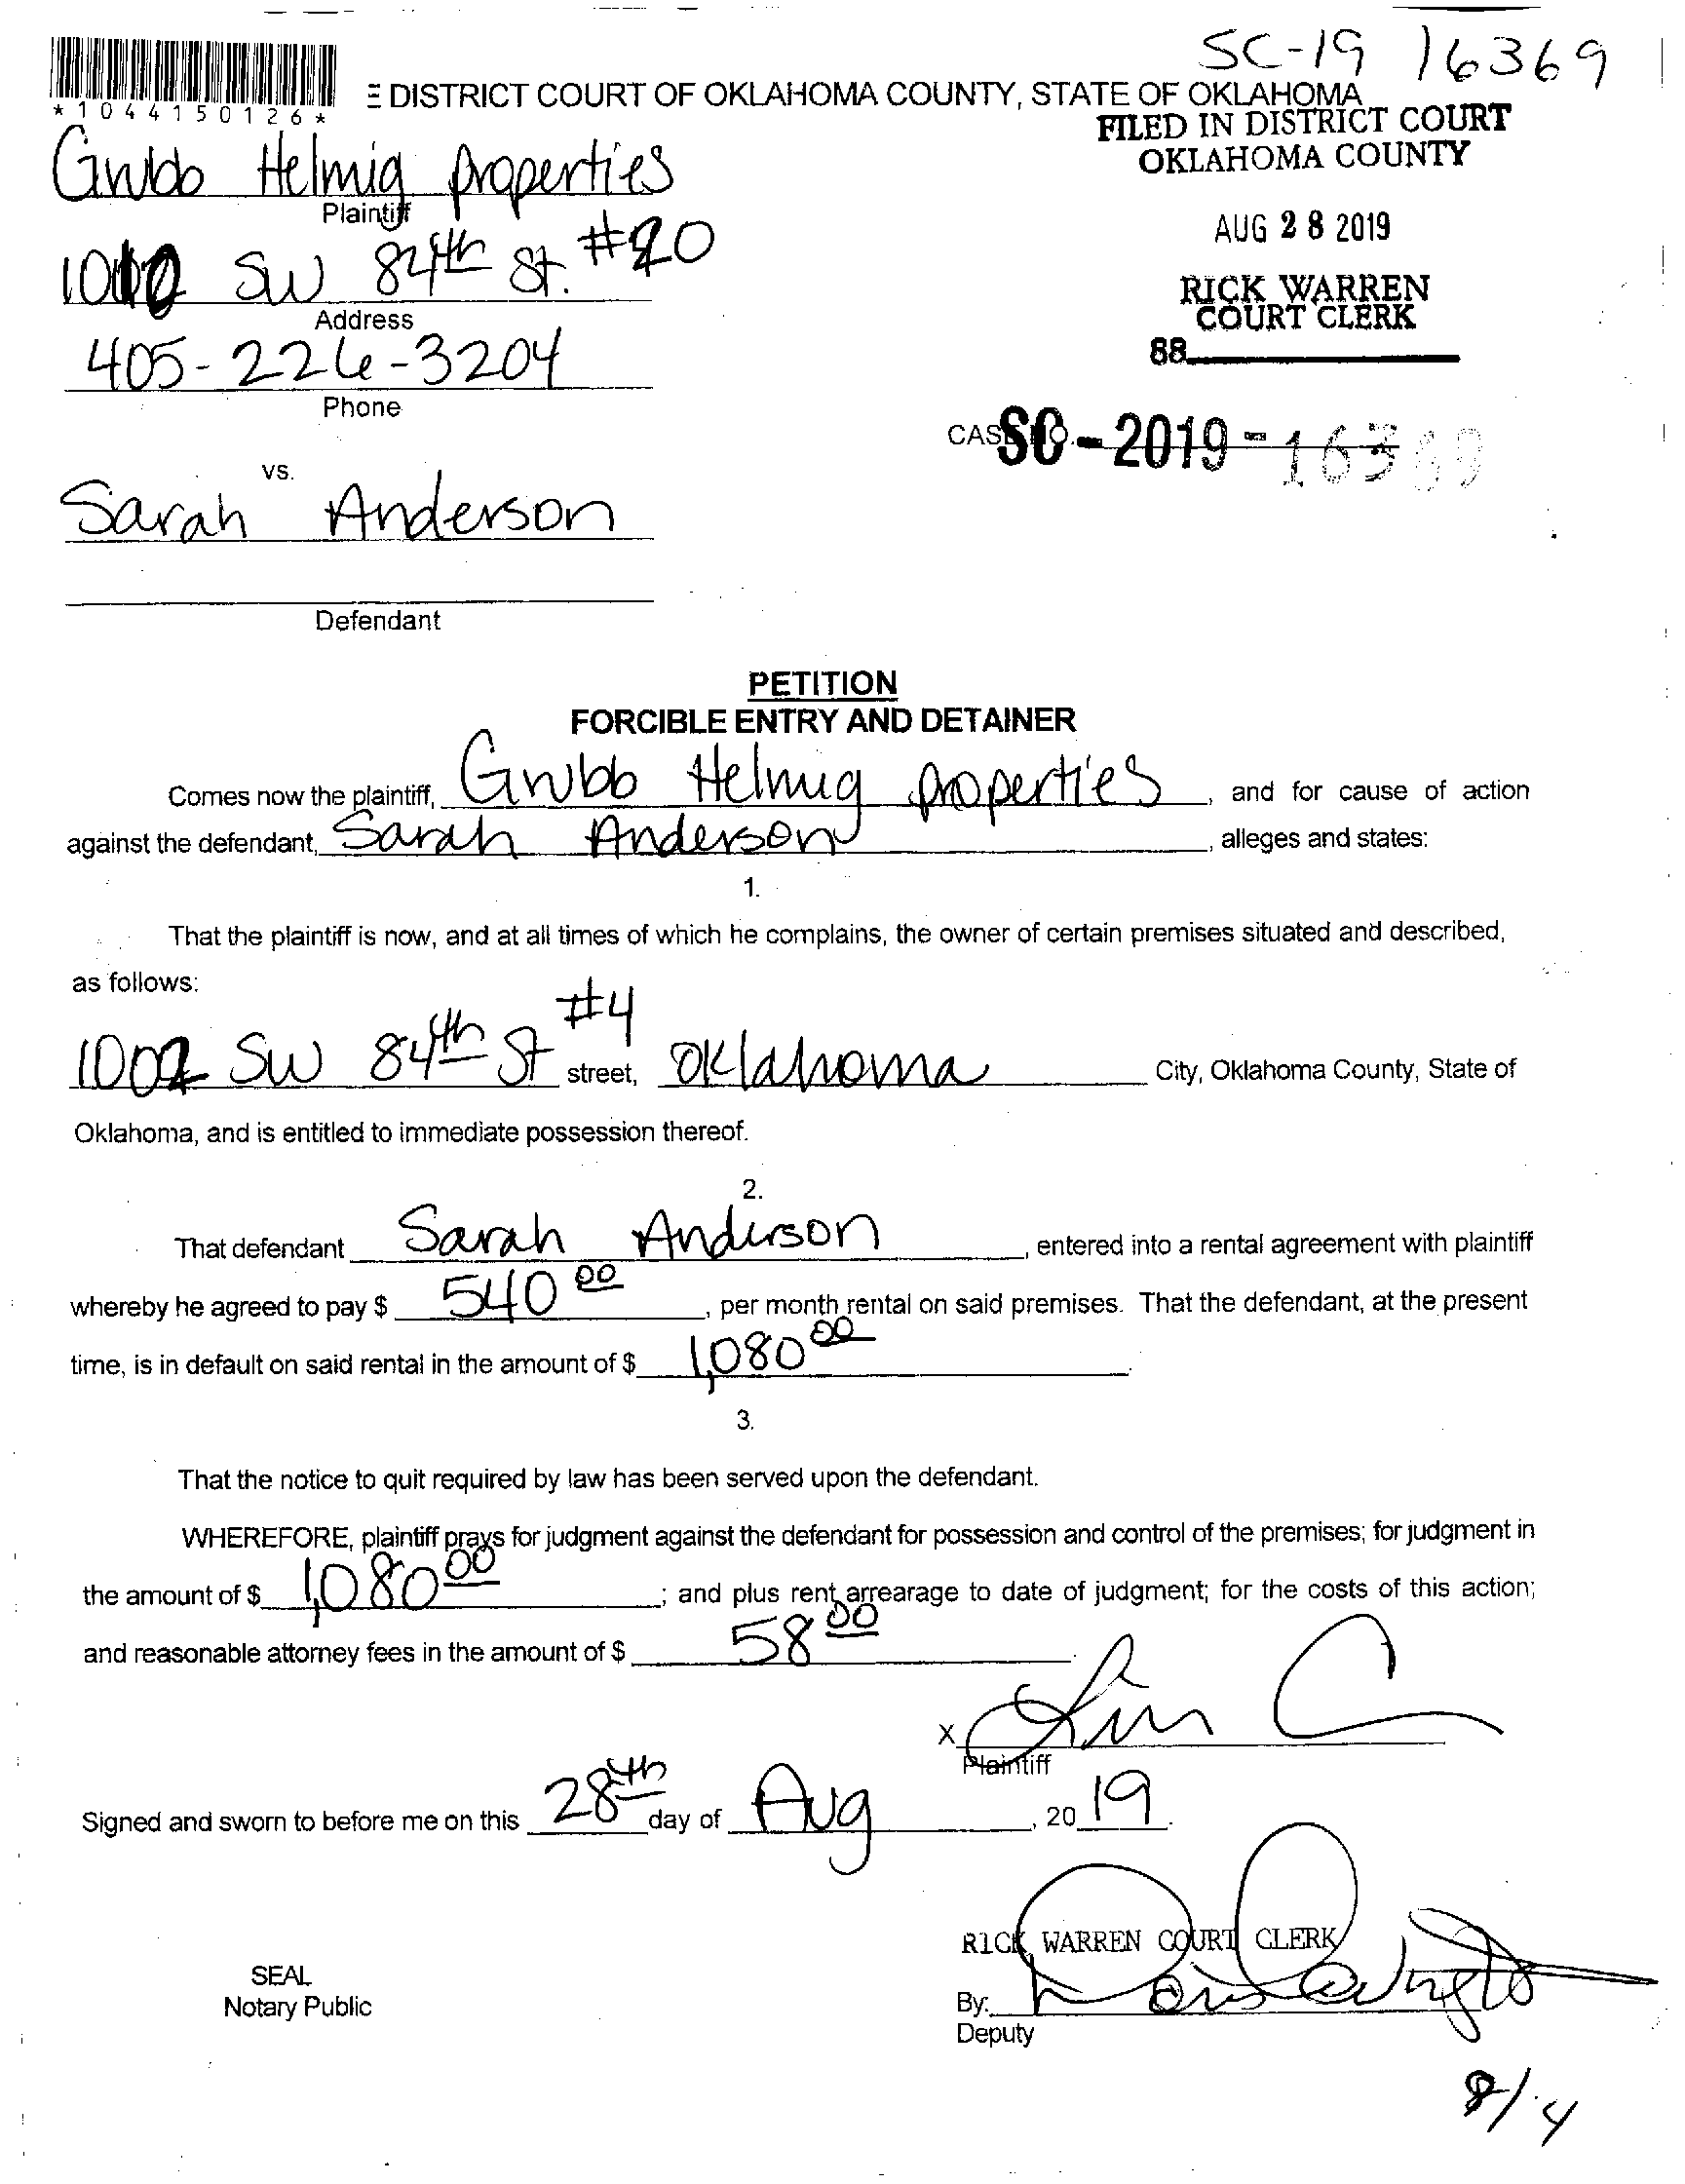 SC-19 16369
*1044150126*
E DISTRICT COURT OF OKLAHOMA COUNTY, STATE OF OKLAHOMA
FILED IN DISTRICT COURT
OKLAHOMA COUNTY
Grubb Helmig properties
Plaintiff
AUG 28 2019
SW 84th St. #20
Address
RICK WARREN
COURT CLERK
405-226-3204
Phone
88
CASE NO. SC-2019-16369
vs.
Sarah Anderson
Defendant
PETITION
FORCIBLE ENTRY AND DETAINER
Comes now the plaintiff, Grubb Helmig properties, and for cause of action
against the defendant, Sarah Anderson, alleges and states:
1.
That the plaintiff is now, and at all times of which he complains, the owner of certain premises situated and described,
as follows:
1002 SW 84th St #4 street, Oklahoma City, Oklahoma County, State of
Oklahoma, and is entitled to immediate possession thereof.
2.
That defendant Sarah Anderson, entered into a rental agreement with plaintiff
whereby he agreed to pay $ 540 00, per month rental on said premises. That the defendant, at the present
time, is in default on said rental in the amount of $ 1,080 00.
3.
That the notice to quit required by law has been served upon the defendant.
WHEREFORE, plaintiff prays for judgment against the defendant for possession and control of the premises; for judgment in
the amount of $ 1,080 00; and plus rent arrearage to date of judgment; for the costs of this action;
and reasonable attorney fees in the amount of $ 58 00
X
Plaintiff
Signed and sworn to before me on this 28th day of Aug, 2019.
RICK WARREN COURT CLERK
SEAL
Notary Public
By:
Deputy